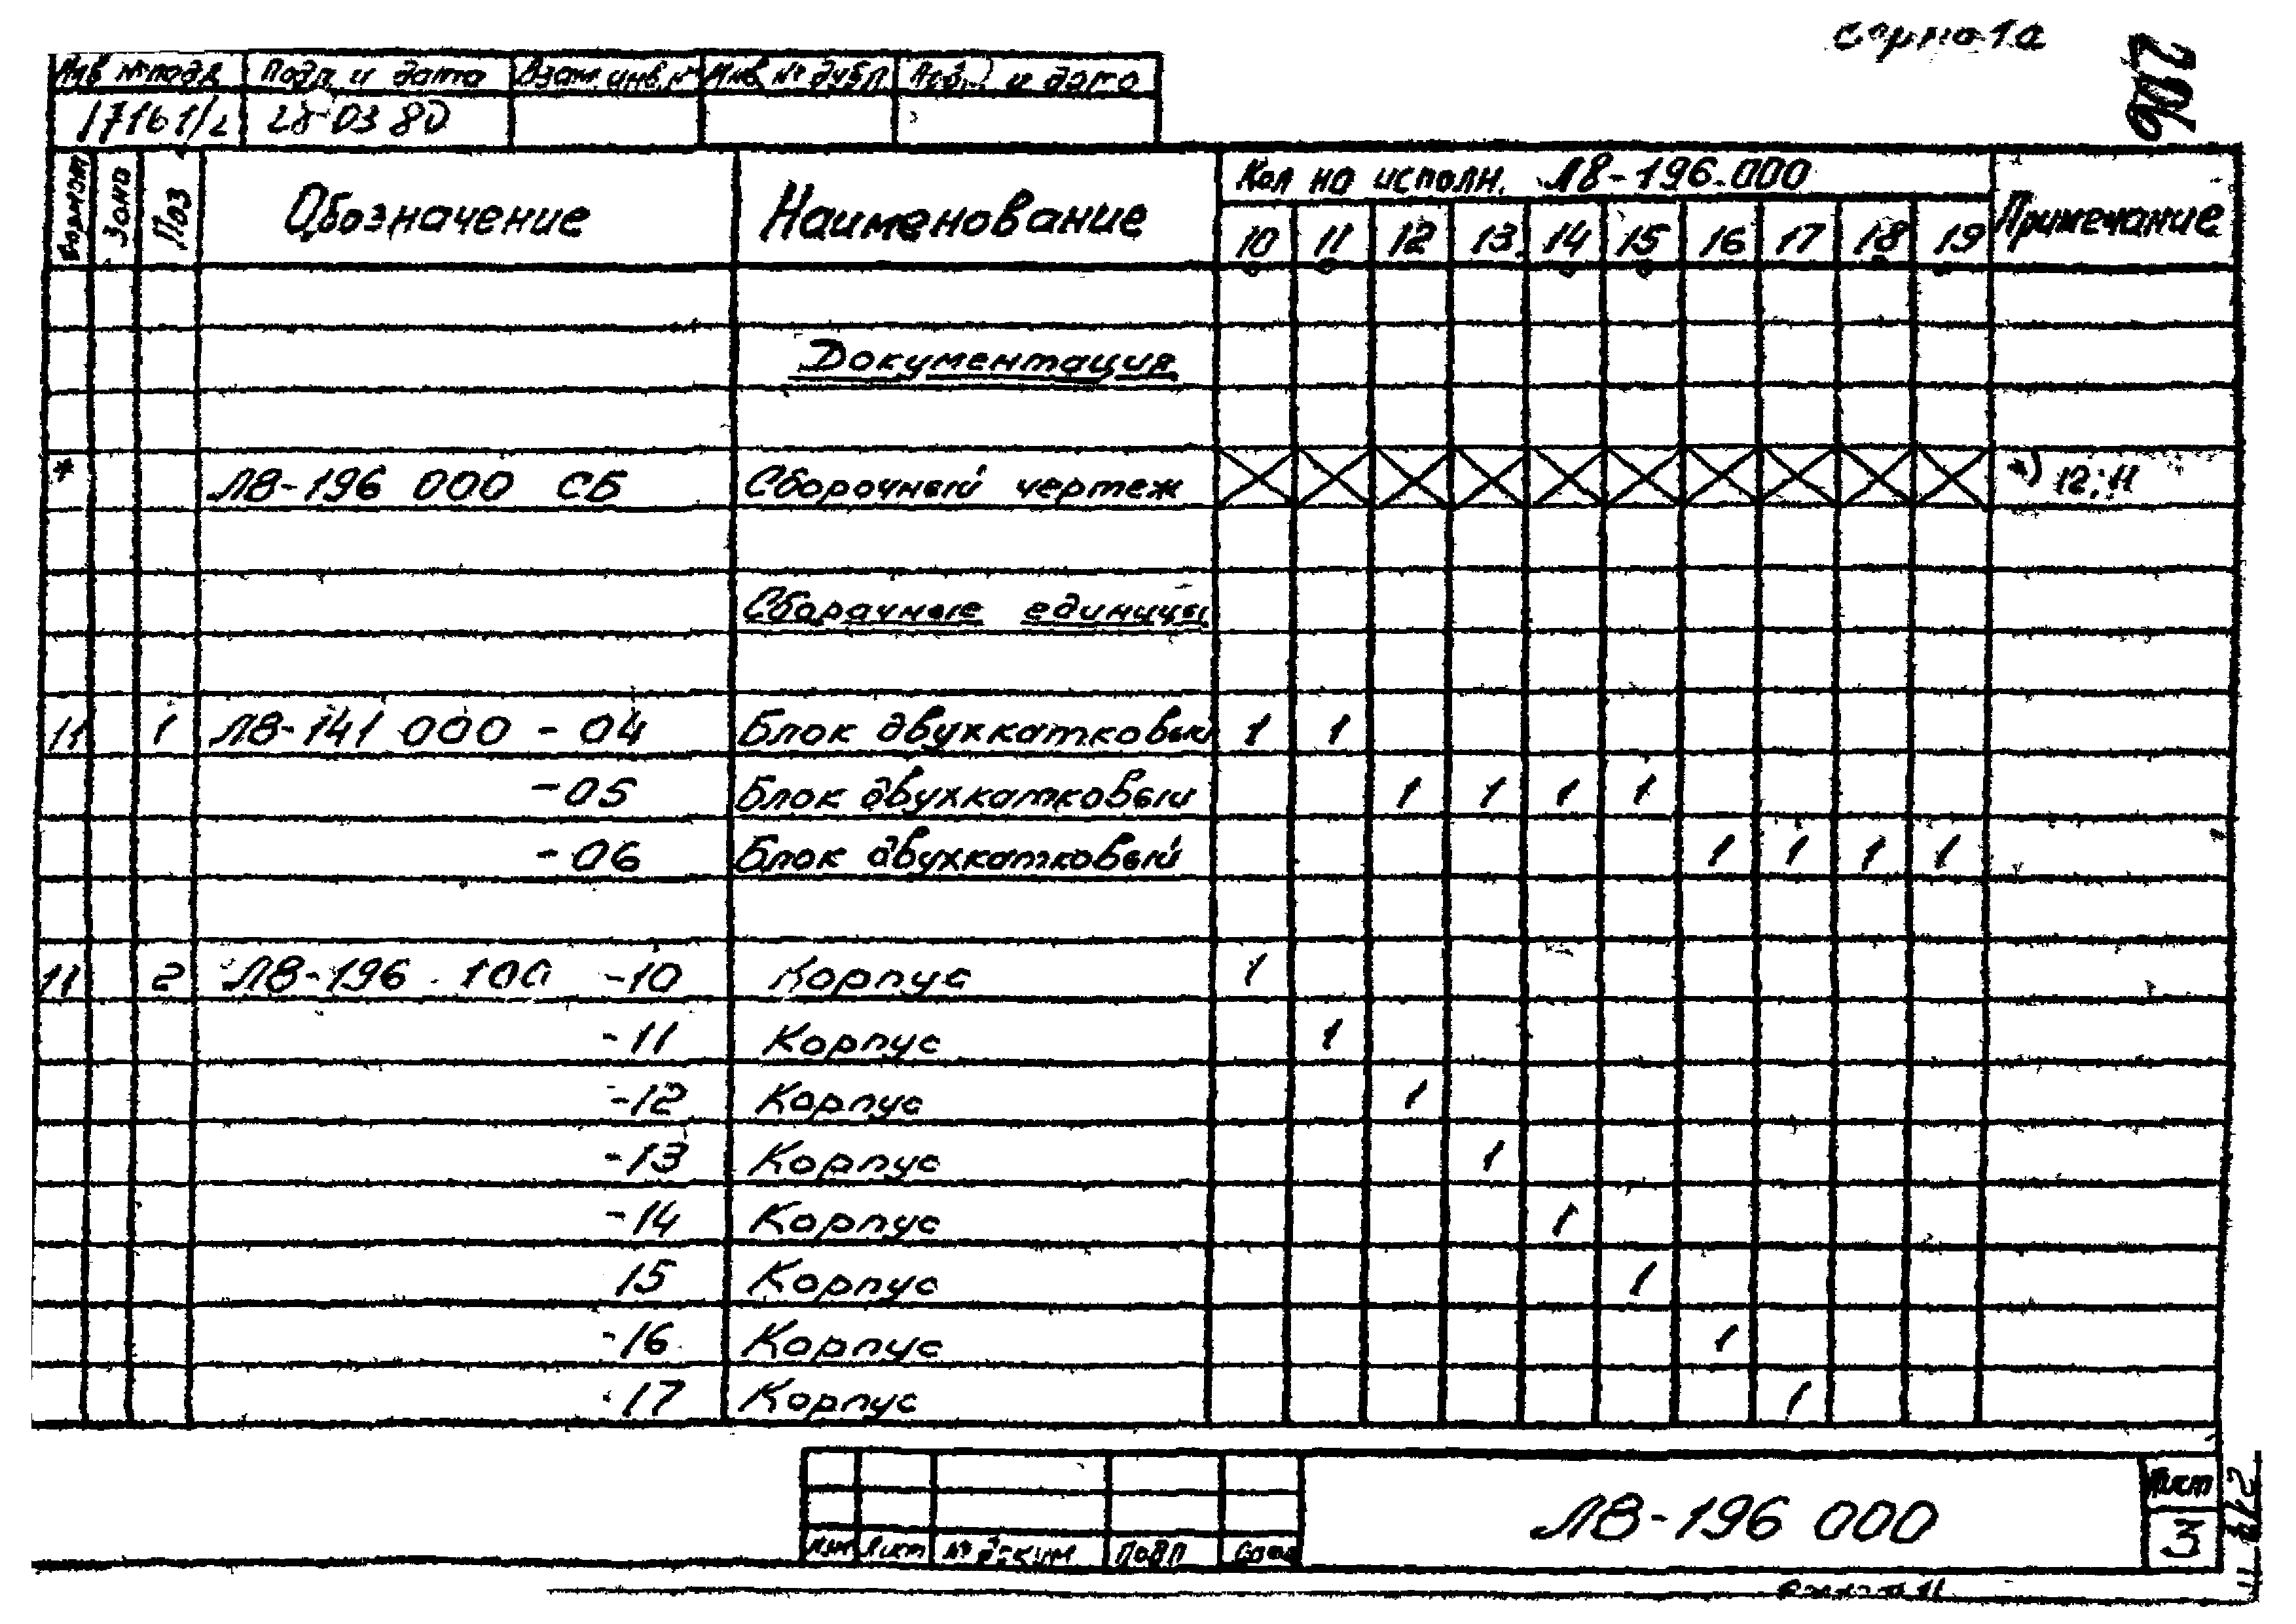 форма 1а
Инв № подл Подп и дата Взам. инв. № Инв № дубл Подп и дата
17161/2 28 03 80
Формат Зона Поз Обозначение Наименование Кол на исполн. Л8-196.000 Примечание
10 11 12 13 14 15 16 17 18 19
Документация
* Л8-196 000 СБ Сборочный чертеж *) 12; 11
Сборочные единицы
11 1 Л8-141 000 - 04 Блок двухкатковый 1 1
-05 Блок двухкатковый 1 1 1 1
-06 Блок двухкатковый 1 1 1 1
11 2 Л8-196. 100 -10 Корпус 1
-11 Корпус 1
-12 Корпус 1
-13 Корпус 1
-14 Корпус 1
15 Корпус 1
-16 Корпус 1
-17 Корпус 1
Л8-196 000
Лист
3
Изм Лист № докум Подп Дата